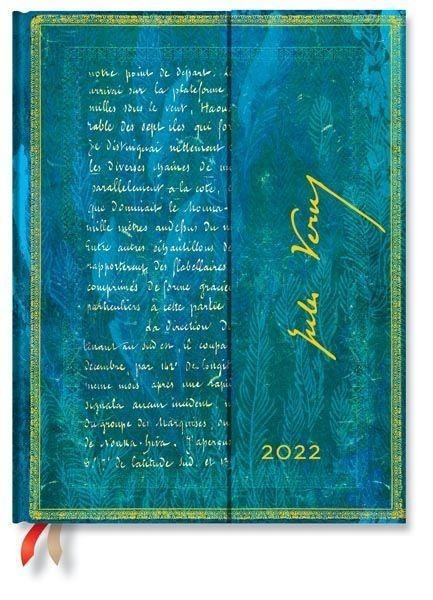 notre point de départ. Le
arrivai sur la plateforme
milles sous le vent, Haou
rable des sept iles qui for
Je distinguai nettement
les diverses chaines de m
parallelement à la côte, e
que dominait le
mille mètres audessus du n
Entre autres échantillons du
rapporterent des flabellaires
comprimés de forme gracie
particuliers à cette partie
La direction D
tenant au sud est, il coupa
decembre, par 142° de longit
meme mois après une rapi
signala aucun incident, n
du groupe des Marquises, ou
de Nouka-Hiva. J'aperçus
de latitude sud, et 13
Jules Verne
2022